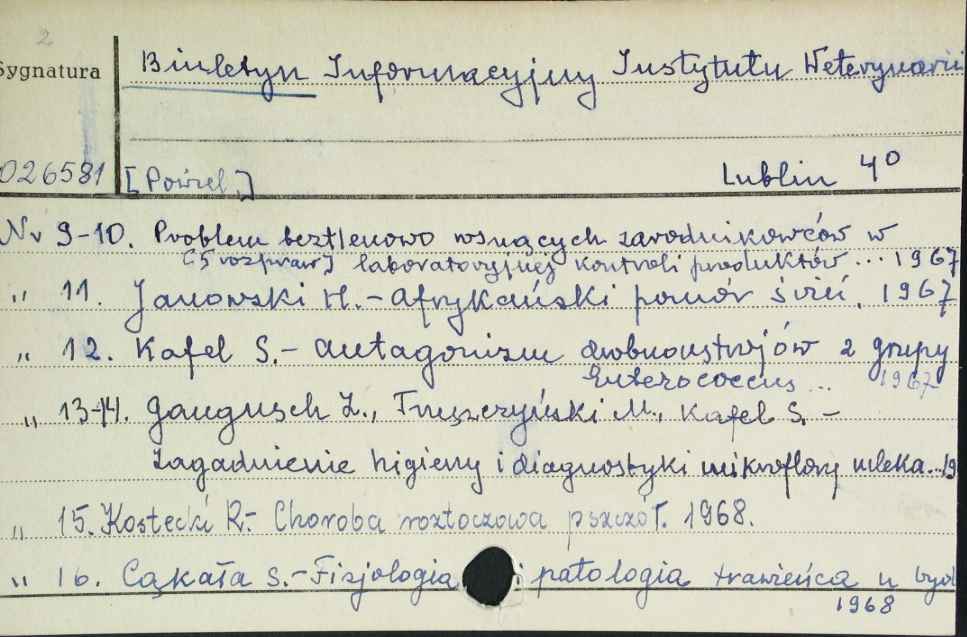 2
Sygnatura
Biuletyn Informacyjny Instytutu Weterynarii
026581 [Powiel.] Lublin 4°
Nr 9-10. Problem beztlenowo rosnących zarodnikowców w
[5 rozpraw] laboratoryjnej kontroli produktów ... 1967
" 11. Janowski H. - Afrykański pomór świń. 1967
" 12. Kafel S. - Antagonizm drobnoustrojów z grupy
Enterococcus ... 1967
" 13-14. Gaugusch Z., Truszczyński M., Kafel S. -
Zagadnienie higieny i diagnostyki mikroflory mleka...19
" 15. Kostecki R. - Choroba roztoczowa pszczół. 1968.
" 16. Cąkała S. - Fizjologia i patologia trawieńca u byd
1968